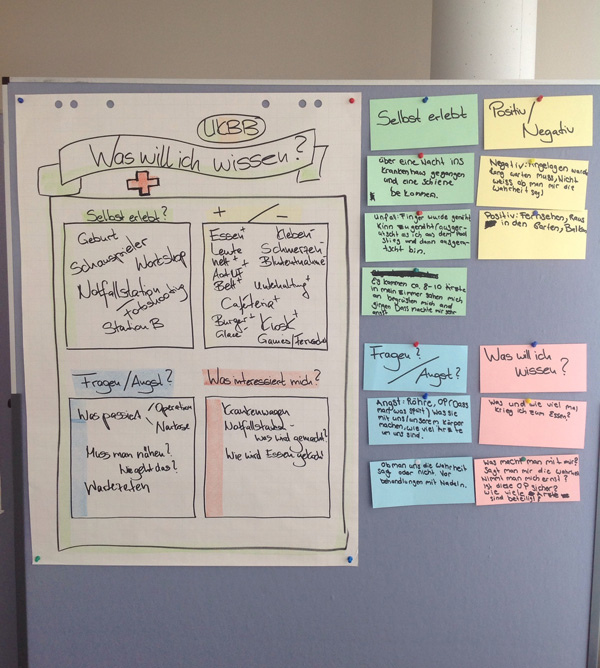 UKBB
Was will ich wissen?
Selbst erlebt?
Geburt
Schauspieler
Workshop
Notfallstation
Fotoshooting
Station B
+ / -
Essen+
Kleben-
Leute
nett+
Schmerzen-
Blutentnahme-
Bett+
Unterhaltung
Cafeteria+
Burger+
Kiosk+
Glacé
Games/
Fragen/Angst?
Was passiert
Operation
Narkose
Muss man nähen?
Wie geht das?
Was interessiert mich?
Krankenwagen
Notfallstation
- was wird gemacht?
Wie wird Essen gekocht
Selbst erlebt
über eine Nacht ins
Krankenhaus gegangen
und eine Schiene
bekommen.
Unfall: Finger wurde genäht
Kinn genäht
als ich aus dem Pool
stieg und dann
bin.
Es kommen ca. 8-10 Ärzte
in mein Zimmer
begrüßten mich und
gingen Dass machte mir sehr
angst
Positiv/
Negativ
Negativ:
lang warten muss, Nicht
weiss ob man mir die
Wahrheit sagt
Positiv: Fernsehen, Raus
in den Garten,
Fragen?
Angst?
Angst: Röhre, OP (Dass
man was spürt) Was sie
mit uns/unserem Körper
machen, wie viel Ärzte
um uns sind.
Ob man uns die Wahrheit
sag oder nicht. Vor
behandlungen mit Nadeln.
Was will ich
wissen?
Was und wie viel mal
krieg ich zum Essen?
Was macht man mit mir?
Sagt man mir die Wahrheit
Nimmt man mich ernst?
Ist diese OP sicher?
Wie viele Ärzte
sind beteiligt?